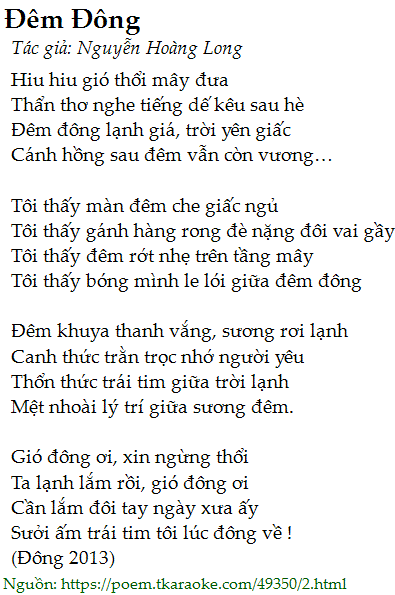 Đêm Đông
Tác giả: Nguyễn Hoàng Long
Hiu hiu gió thổi mây đưa
Thẩn thơ nghe tiếng dế kêu sau hè
Đêm đông lạnh giá, trời yên giấc
Cánh hồng sau đêm vẫn còn vương...
Tôi thấy màn đêm che giấc ngủ
Tôi thấy gánh hàng rong đè nặng đôi vai gầy
Tôi thấy đêm rớt nhẹ trên tầng mây
Tôi thấy bóng mình le lói giữa đêm đông
Đêm khuya thanh vắng, sương rơi lạnh
Canh thức trằn trọc nhớ người yêu
Thổn thức trái tim giữa trời lạnh
Mệt nhoài lý trí giữa sương đêm.
Gió đông ơi, xin ngừng thổi
Ta lạnh lắm rồi, gió đông ơi
Cần lắm đôi tay ngày xưa ấy
Sưởi ấm trái tim tôi lúc đông về !
(Đông 2013)
Nguồn: https://poem.tkaraoke.com/49350/2.html